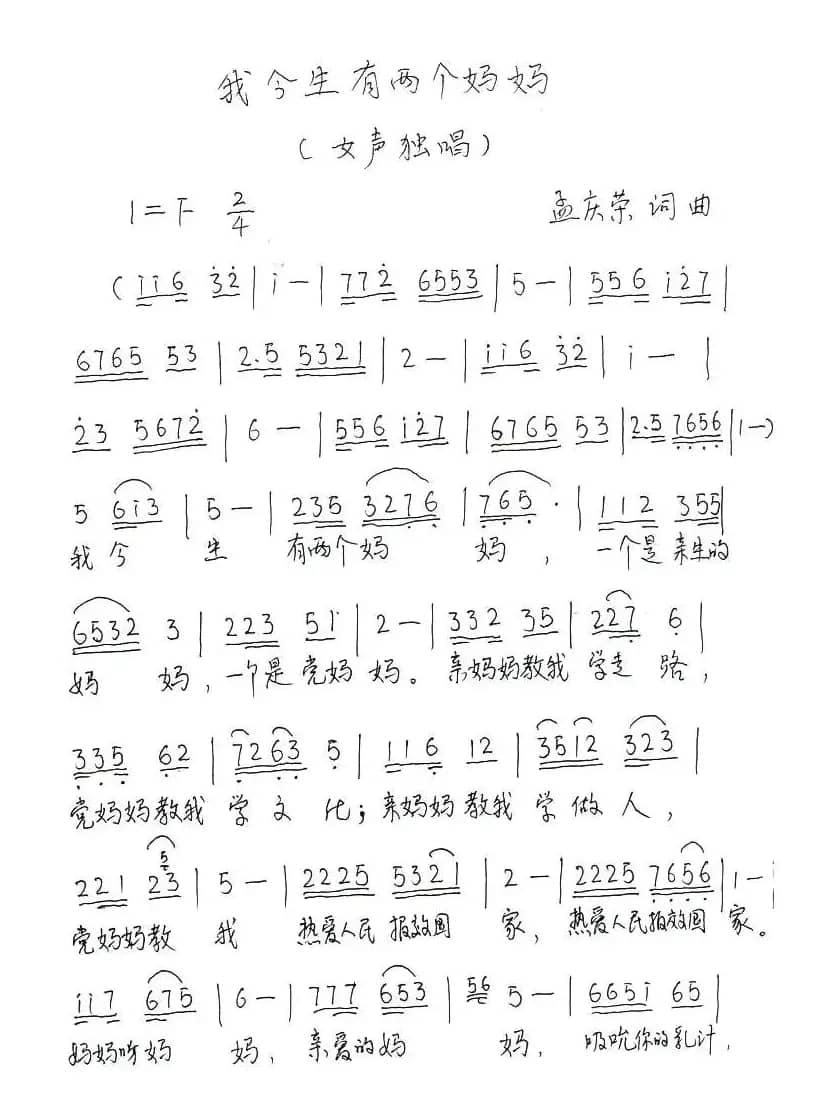 我今生有两个妈妈
（女声独唱）
1=F 2/4 孟庆荣 词曲
(i̇i̇6 3̇2̇ | i̇ — | 772̇ 6553 | 5 — | 556 i̇2̇7 |
6765 53 | 2.5 5321 | 2 — | i̇i̇6 3̇2̇ | i̇ — |
2̇3 5672̇ | 6 — | 556 i̇2̇7 | 6765 53 | 2.5 7̣6̣5̣6̣ | 1 —)
5 6i̇3 | 5 — | 235 327̣6̣ | 7̣6̣5̣ · | 112 355 |
我今 生 有两个妈 妈，一个是亲生的
6532 3 | 223 51 | 2 — | 332 35 | 227̣ 6̣ |
妈 妈，一个是党妈 妈。亲妈妈教我 学走 路，
3̣3̣5̣ 6̣2 | 7̣26̣3̣ 5̣ | 116̣ 12 | 3512 323 |
党妈妈教我 学文 化；亲妈妈教我 学做人，
221 23 5 | 5 — | 2225 5321 | 2 — | 2225 7̣6̣5̣6̣ | 1 —
党妈妈教 我 热爱人民 报效国 家，热爱人民报效国 家。
i̇i̇7 675 | 6 — | 777 653 | 56 5 — | 665i̇ 65 |
妈妈呀妈 妈，亲爱的妈 妈，吸吮你的乳汁，